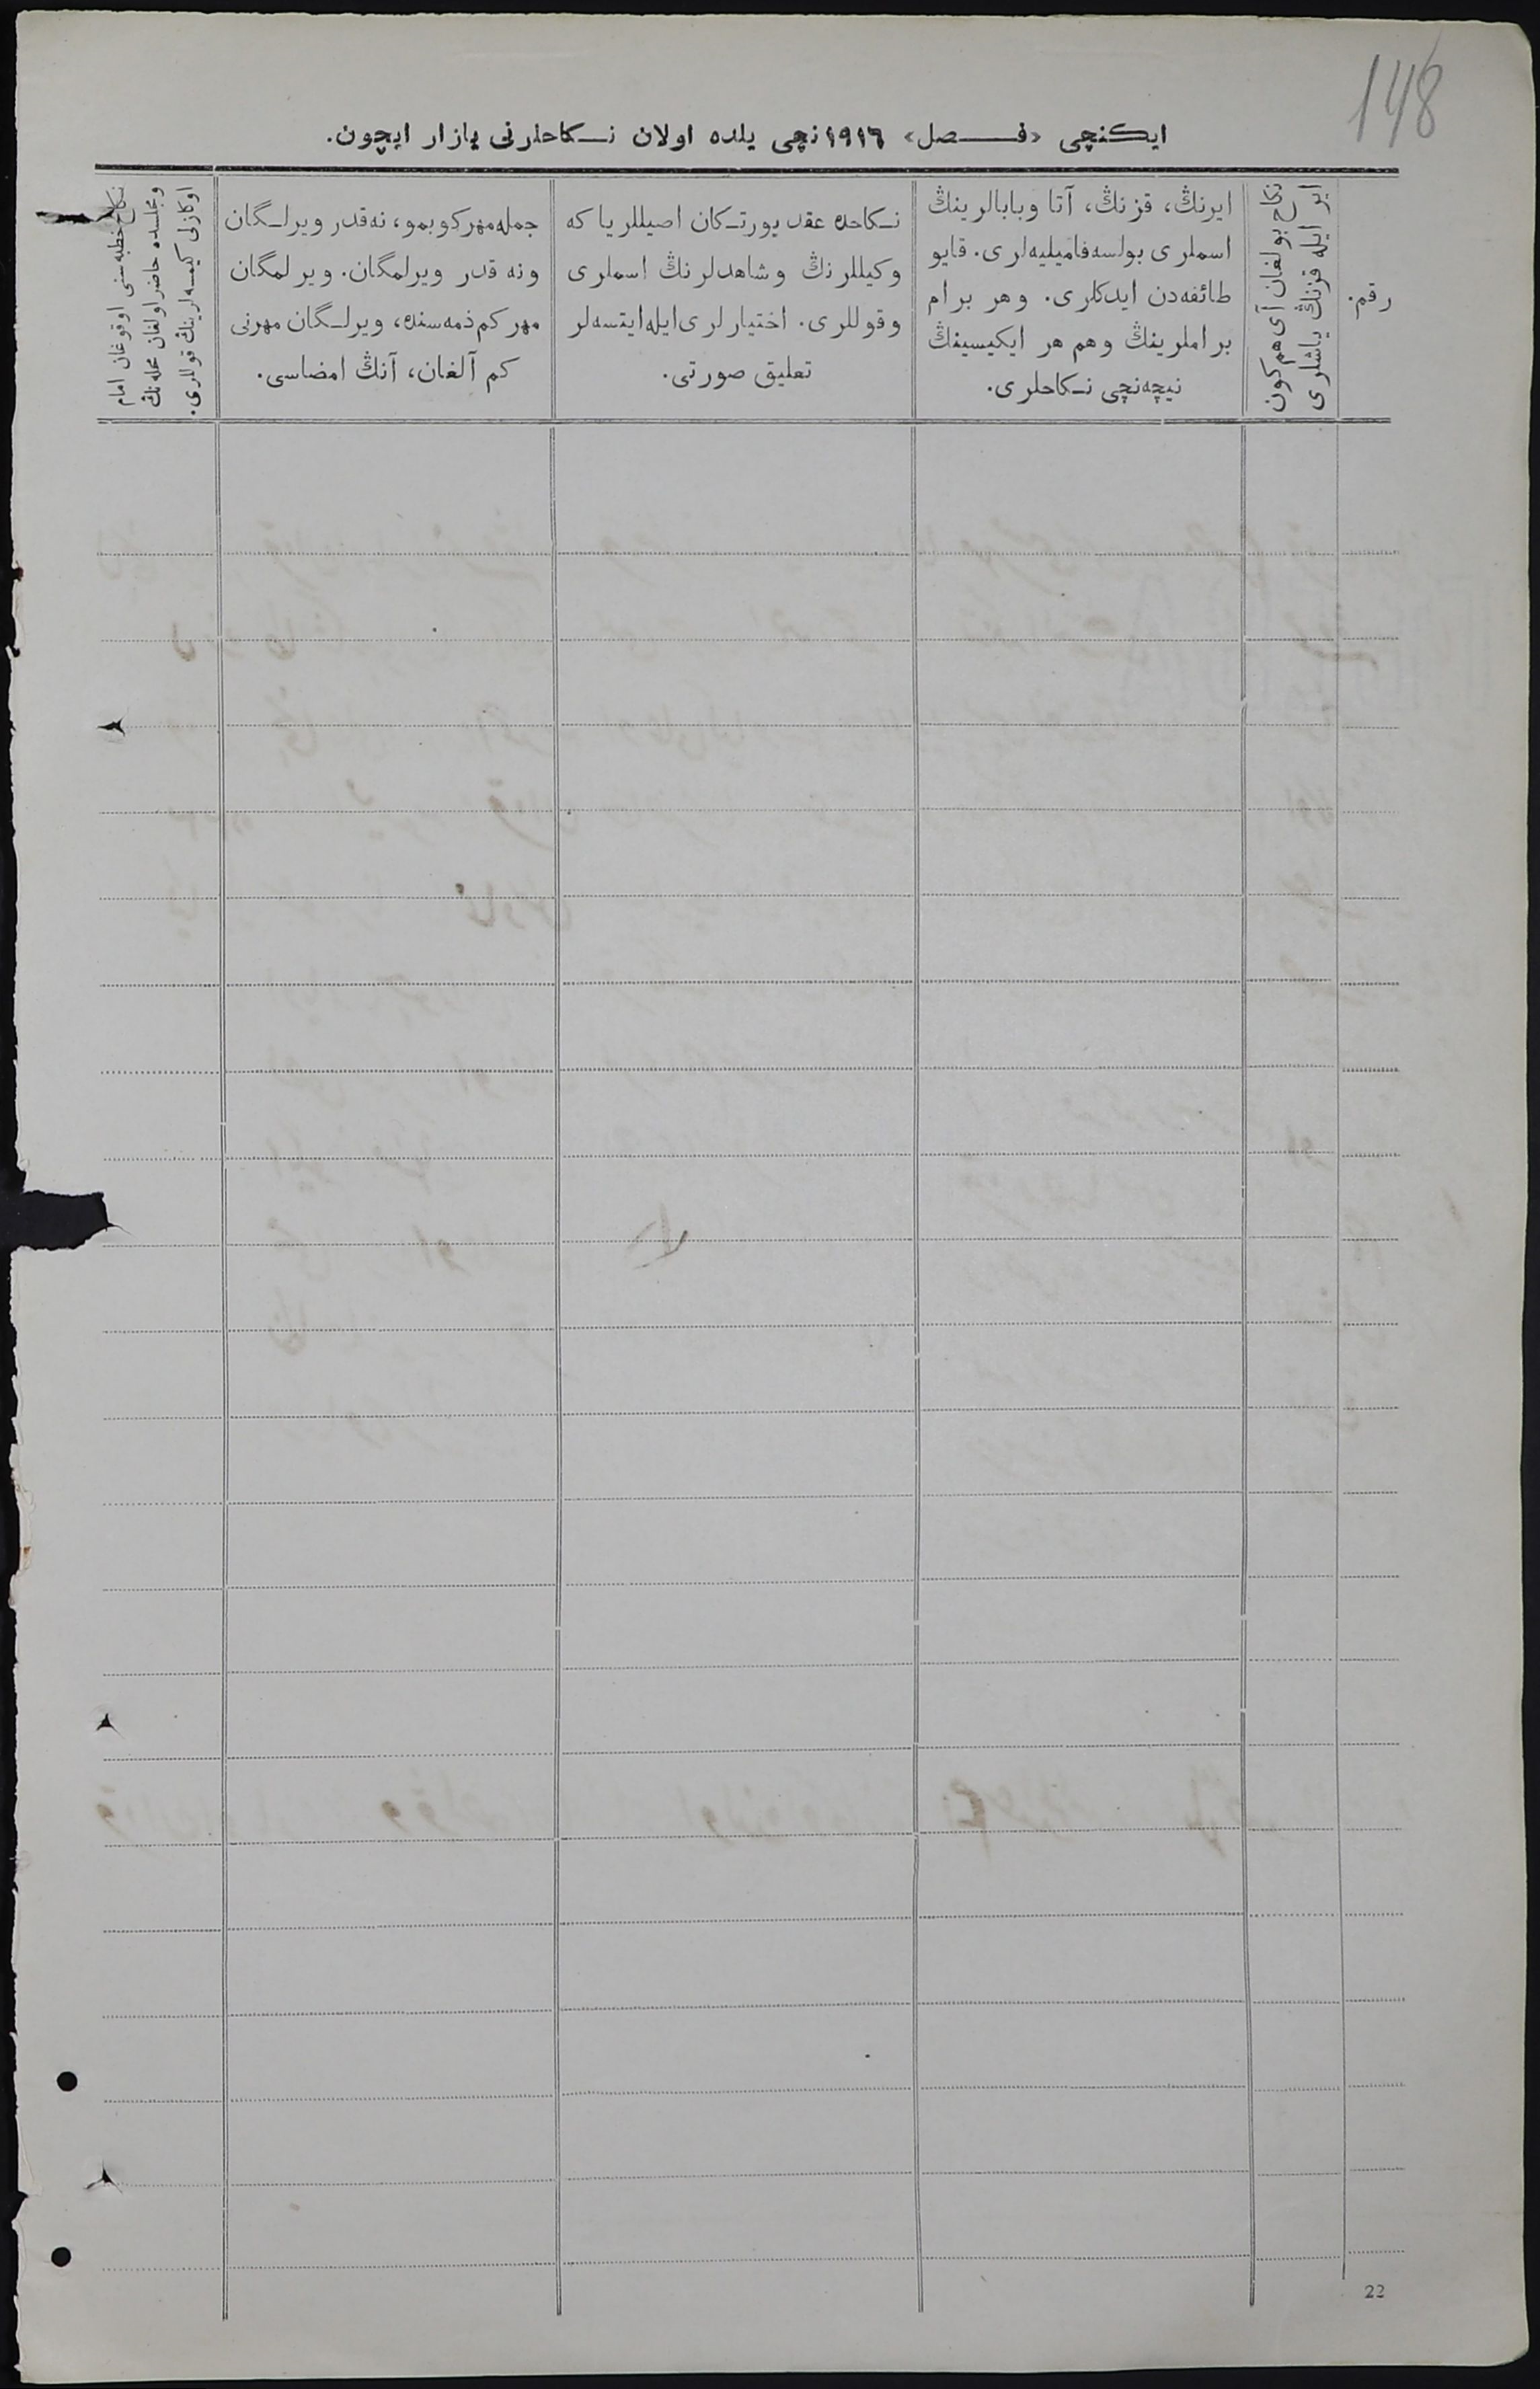 148
ایکنچی «فصل» ١٩١٦نچی یلده اولان نکاحلرنی یازار ایچون.
رقم.
نکاح بولغان آی هم کون
ایر ایله قزنڭ یاشلری
ایرنڭ، قزنڭ، آتا وبابالرینڭ
اسملری بولسه فامیلیه‌لری. قایو
طائفه‌دن ایدکلری. وهر برام
براملرینڭ وهم هر ایکیسینڭ
نیچه‌نچی نکاحلری.
نکاحده عقد یورتکان اصیللر یا که
وکیللرنڭ وشاهدلرنڭ اسملری
وقوللری. اختیارلری ایله ایتسه‌لر
تعلیق صورتی.
جمله مهر کوبمو، نه‌قدر ویرلگان
ونه قدر ویرلمگان. ویرلمگان
مهر کم ذمه‌سنده، ویرلگان مهرنی
کم آلغان، آنڭ امضاسی.
نکاح خطبه‌سنی اوقوغان امام
ومجلسده حاضر اولغان محله‌نڭ
اوکازلی کیمسه‌لرینڭ قوللری.
22